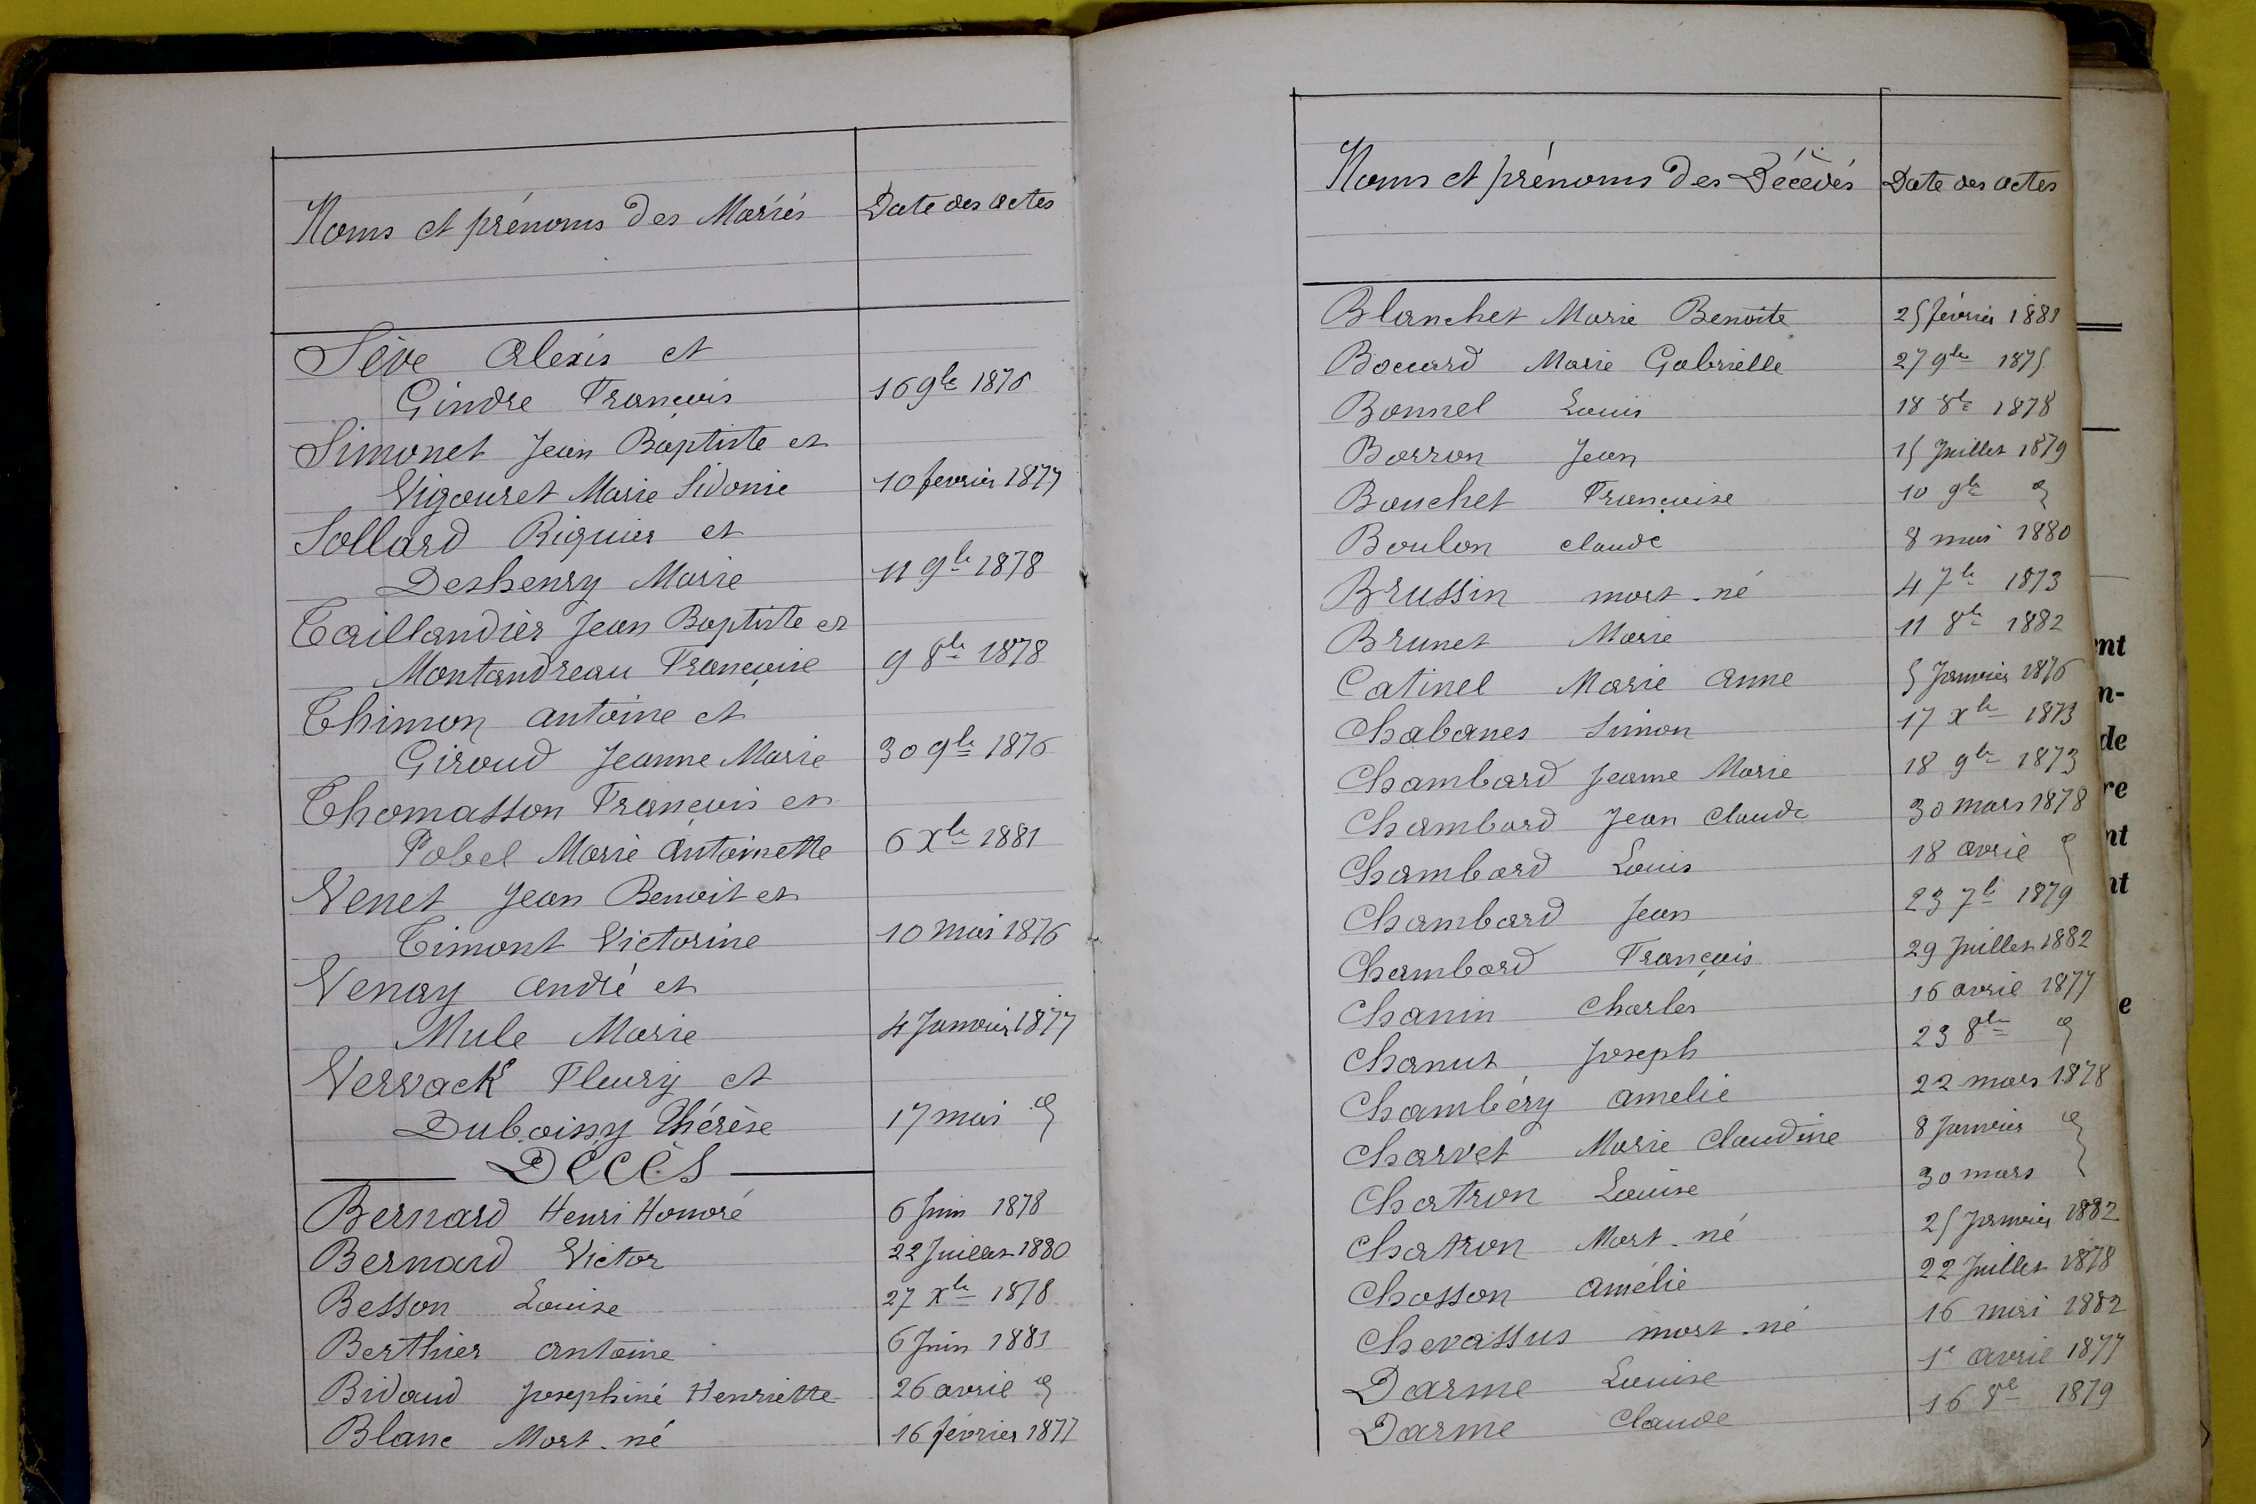 Noms et prénoms des Mariés Date des actes
Sève Alexis et
Gindre François 16 9bre 1876
Simonet Jean Baptiste et
Vigouret Marie Sidonie 10 fevrier 1877
Sollard Riquier et
Deshenry Marie 11 9bre 1878
Taillandier Jean Baptiste et
Montandreau Françoise 9 8bre 1878
Thimon Antoine et
Giroud Jeanne Marie 30 9bre 1876
Thomasson François et
Pobel Marie Antoinette 6 Xbre 1881
Venet Jean Benoit et
Timont Victorine 10 mai 1876
Venay André et
Mule Marie 4 Janvier 1877
Vervack Fleury et
Duboisny Thérèse 17 mai
Décès
Bernard Henri Honoré 6 Juin 1878
Bernard Victor 22 Juillet 1880
Besson Louise 27 Xbre 1878
Berthier Antoine 6 Juin 1881
Bidaud Josephine Henriette 26 avril
Blanc Mort-né 16 février 1877
Noms et prénoms des Décédés Date des actes
Blanchet Marie Benoite 25 février 1881
Bocuard Marie Gabrielle 27 9bre 1875
Bonnel Louis 18 8bre 1878
Borron Jean 15 Juillet 1879
Bouchet Françoise 10 9bre
Boulon Claude 8 mai 1880
Brussin mort-né 4 7bre 1873
Brunet Marie 11 8bre 1882
Catinel Marie Anne 5 Janvier 1876
Chabanes Simon 17 Xbre 1873
Chambard Jeanne Marie 18 9bre 1873
Chambard Jean Claude 30 mars 1878
Chambard Louis 18 avril
Chambard Jean 23 7bre 1879
Chambard François 29 Juillet 1882
Chanin Charles 16 avril 1877
Chanut Joseph 23 8bre
Chambéry Amelie 22 mars 1878
Charvet Marie Claudine 8 Janvier
Chatron Louise 30 mars
Chatron Mort-né 25 Janvier 1882
Chosson Amélie 22 Juillet 1878
Chevassus mort-né 16 mai 1882
Darme Louise 1er avril 1877
Darme Claude 16 8bre 1879
nt
n-
de
re
nt
nt
e